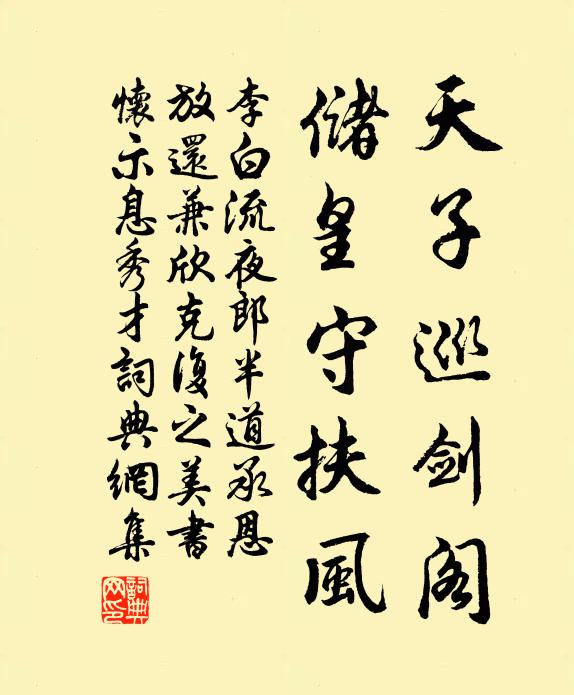 天子巡剑阁
儲皇守扶風
李白流夜郎半道承恩
放還兼欣克復之美書
懷示息秀才詞典網集
詞典網印